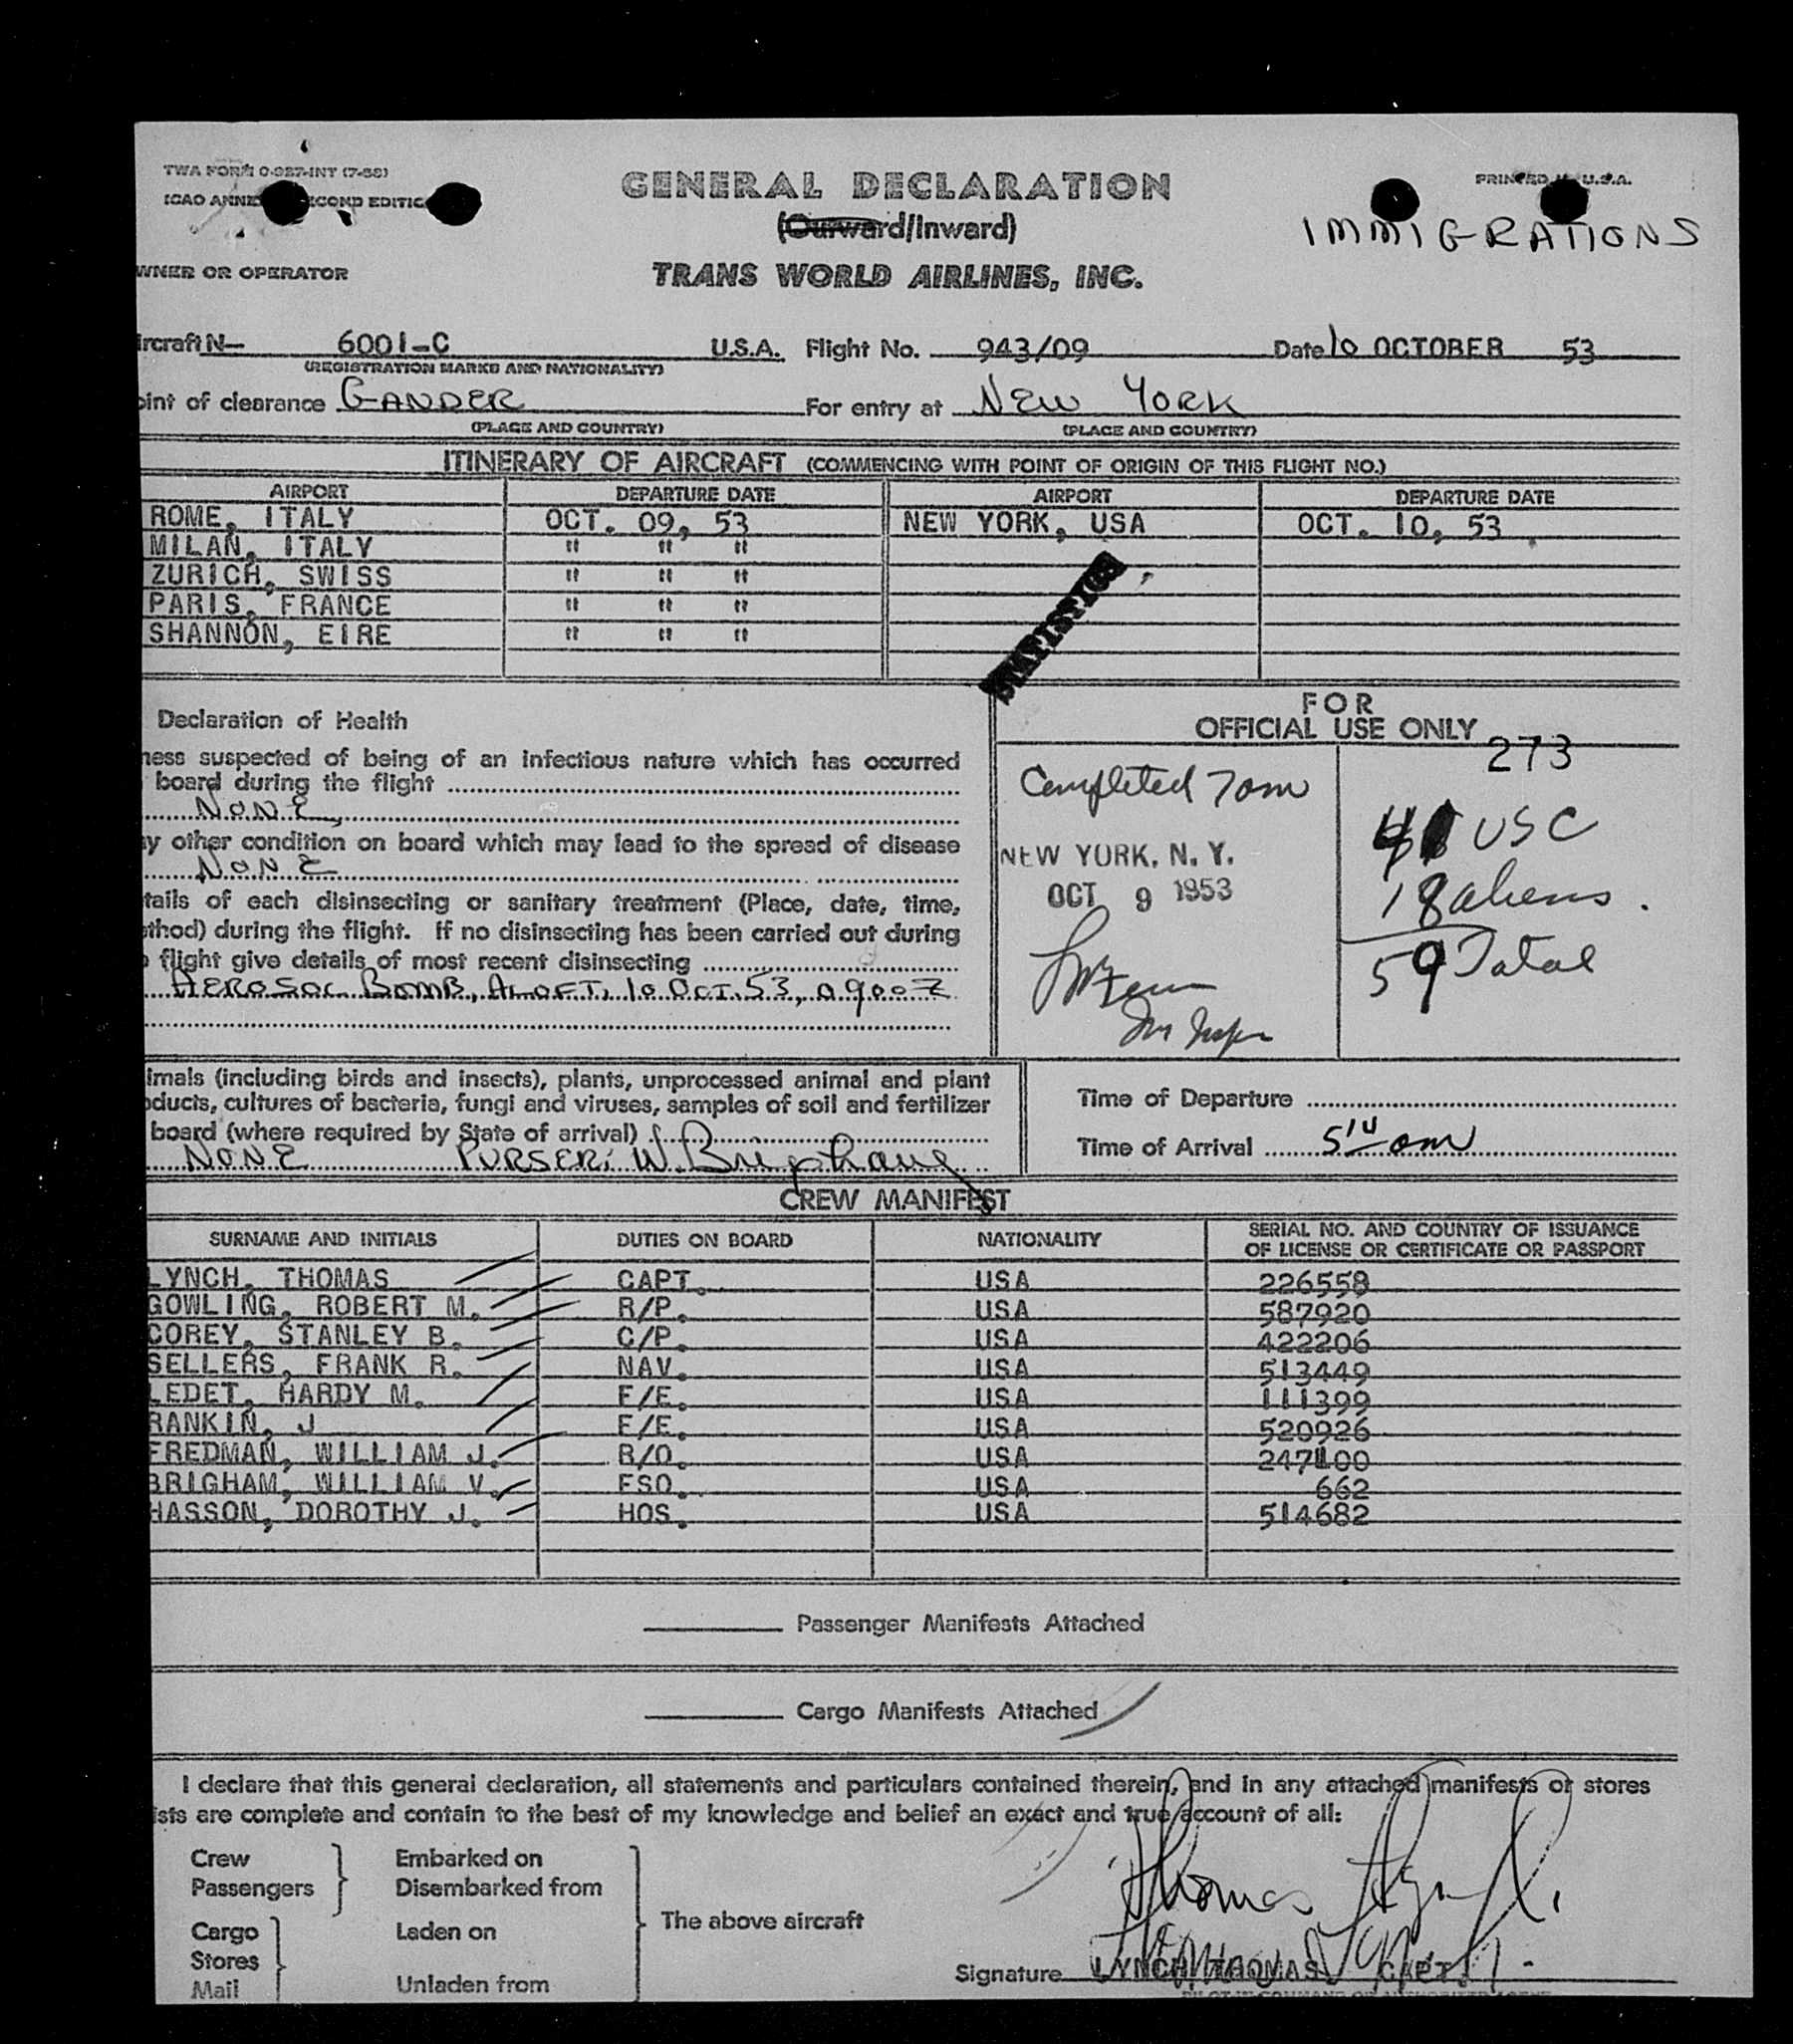 TWA FORM O-927-INT (7-53)
PRINTED U.S.A.
ICAO ANNE ECOND EDITIO
GENERAL DECLARATION
(Outward/Inward)
IMMIGRATIONS
WNER OR OPERATOR
TRANS WORLD AIRLINES, INC.
ircraft N— 6001-C U.S.A. Flight No. 943/09 Date 10 OCTOBER 53
(REGISTRATION MARKS AND NATIONALITY)
oint of clearance GANDER For entry at NEW YORK
(PLACE AND COUNTRY) (PLACE AND COUNTRY)
ITINERARY OF AIRCRAFT (COMMENCING WITH POINT OF ORIGIN OF THIS FLIGHT NO.)
AIRPORT DEPARTURE DATE AIRPORT DEPARTURE DATE
ROME, ITALY OCT. 09, 53 NEW YORK, USA OCT. 10, 53
MILAN, ITALY " " "
ZURICH, SWISS " " "
PARIS, FRANCE " " "
SHANNON, EIRE " " "
STATISTICS
Declaration of Health
ness suspected of being of an infectious nature which has occurred
board during the flight
NONE
ny other condition on board which may lead to the spread of disease
NONE
tails of each disinsecting or sanitary treatment (Place, date, time,
ethod) during the flight. If no disinsecting has been carried out during
flight give details of most recent disinsecting
AEROSOL BOMB, ALOFT, 10 OCT. 53, 0900Z
FOR
OFFICIAL USE ONLY
273
Completed 7am
NEW YORK, N. Y.
OCT 9 1953
41 USC
18 aliens.
59 Total
imals (including birds and insects), plants, unprocessed animal and plant
oducts, cultures of bacteria, fungi and viruses, samples of soil and fertilizer
board (where required by State of arrival)
NONE PURSER: W.
Time of Departure
Time of Arrival 5 10 am
CREW MANIFEST
SURNAME AND INITIALS DUTIES ON BOARD NATIONALITY SERIAL NO. AND COUNTRY OF ISSUANCE
OF LICENSE OR CERTIFICATE OR PASSPORT
LYNCH, THOMAS CAPT. USA 226558
GOWLING, ROBERT M. R/P. USA 587920
COREY, STANLEY B. C/P. USA 422206
SELLERS, FRANK R. NAV. USA 513449
LEDET, HARDY M. F/E. USA 111399
RANKIN, J F/E. USA 520926
FREDMAN, WILLIAM J. R/O. USA 247100
BRIGHAM, WILLIAM V. FSO. USA 662
HASSON, DOROTHY J. HOS. USA 514682
Passenger Manifests Attached
Cargo Manifests Attached
I declare that this general declaration, all statements and particulars contained therein, and in any attached manifests or stores
ists are complete and contain to the best of my knowledge and belief an exact and true account of all:
Crew Embarked on
Passengers Disembarked from
Cargo Laden on
The above aircraft
Stores
Mail Unladen from
Thomas Lynch
Signature LYNCH, THOMAS CAPT.